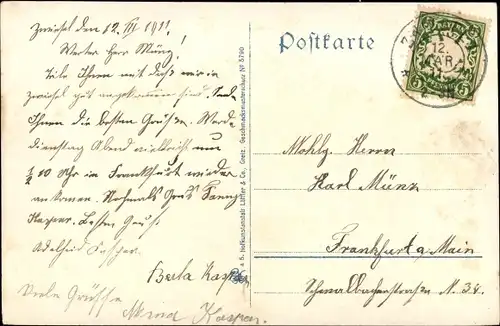 Zwiesel den 12. III 1911.
Werter Herr Münz!
Teile Ihnen mit daß wir in
Zwiesel gut angekommen sind. Sende
Ihnen die besten Grüße. Werde
Dienstag Abend vielleicht um
½ 10 Uhr in Frankfurt wieder
ankommen. Nochmals Gruß
Kasper. Besten Gruß
Adelheid
Berta Kasper
Viele Grüsse
Kaspar.
Postkarte
12. MAR
11
BAYERN
5 5
Wohlg. Herrn
Karl Münz
Frankfurt a Main
Schwalbacherstraße N. 38.
Hofkunstanstalt Löffler & Co., Greiz. Geschmacksmusterschutz Nº 5790